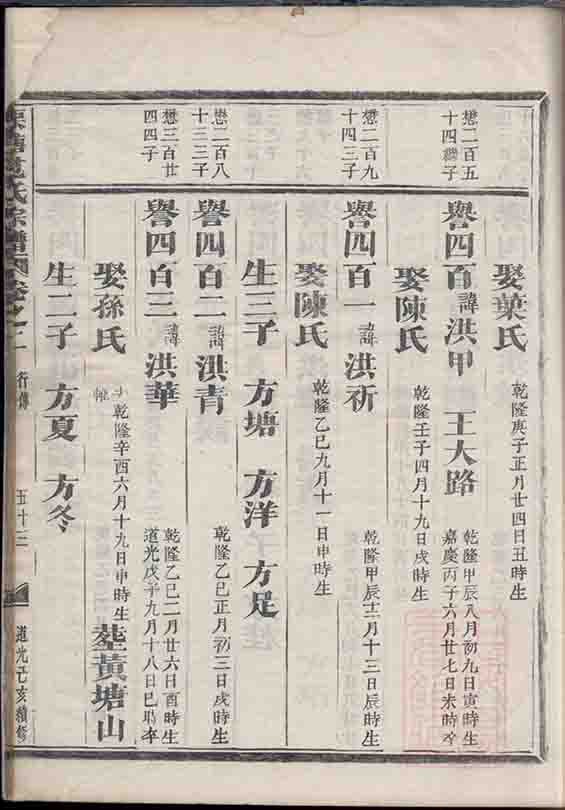 娶葉氏 乾隆庚子正月廿四日丑時生
懋二百五十四繼子
譽四百 諱洪甲 王大路 乾隆甲辰八月初九日寅時生 嘉慶丙子六月廿七日未時卒
娶陳氏 乾隆壬子四月十九日戌時生
懋二百九十四三子
譽四百一 諱洪祈 乾隆甲辰十二月十三日辰時生
娶陳氏 乾隆乙巳九月十一日申時生
生三子 方塘 方洋 方足
懋二百八十三三子
譽四百二 諱洪青 乾隆乙巳正月初三日戌時生
懋三百廿四四子
譽四百三 諱洪華 乾隆乙巳二月廿六日酉時生 道光戊子九月十八日巳時卒
娶孫氏 乾隆辛酉六月十九日申時生 塟黃塘山
生二子 方夏 方冬
氏宗譜 卷之二 行傳 五十三 道光己亥續脩